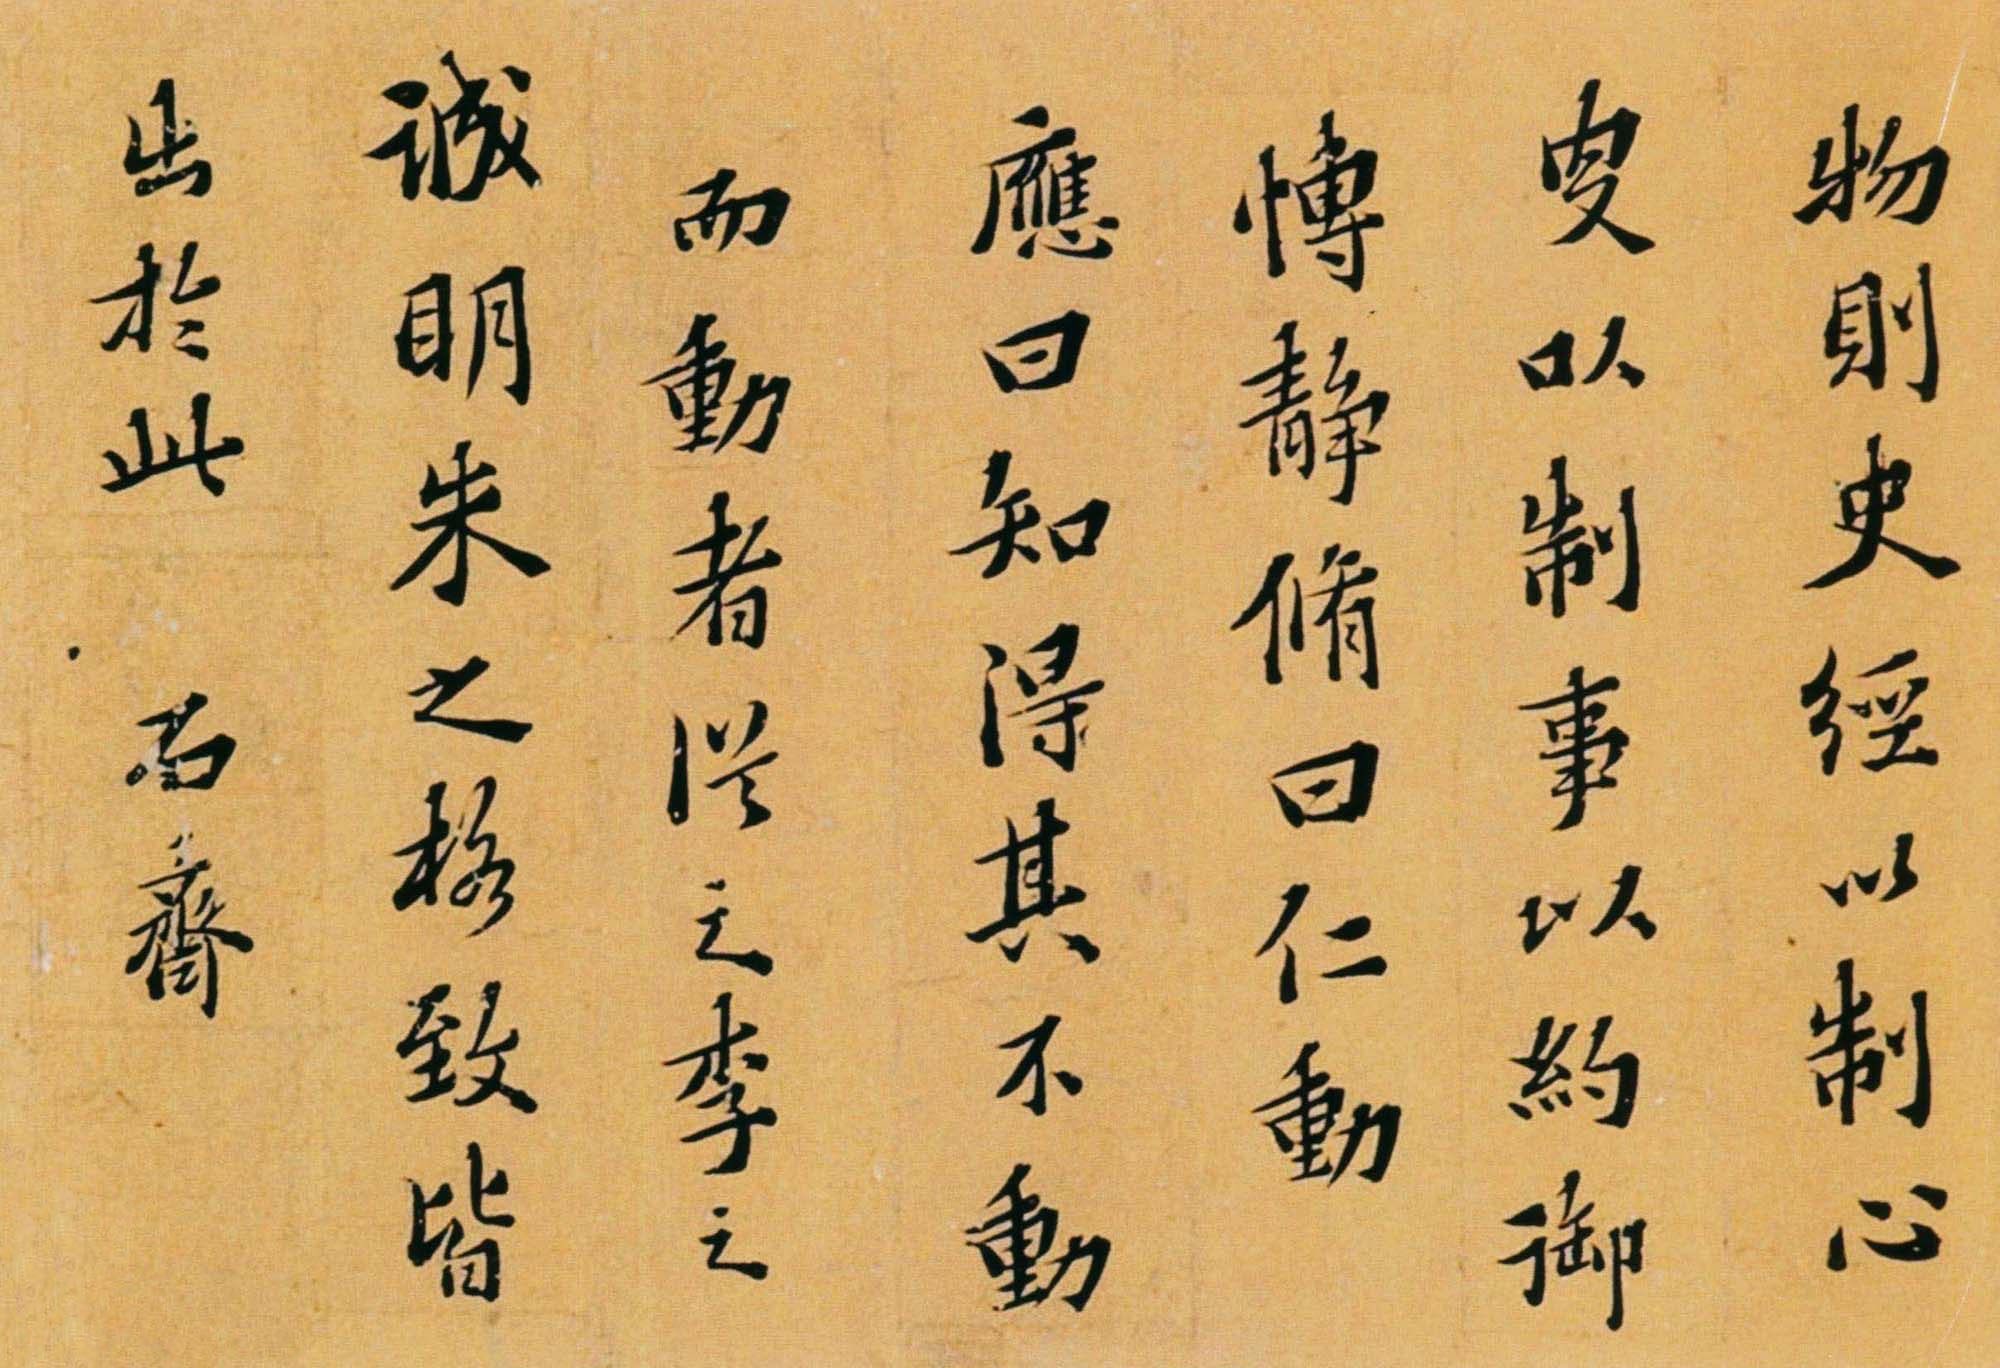 物則史經以制心
史以制事以約御
博靜脩曰仁動
應曰知得其不動
而動者從之李之
誠明朱之格致皆
出於此 石齋